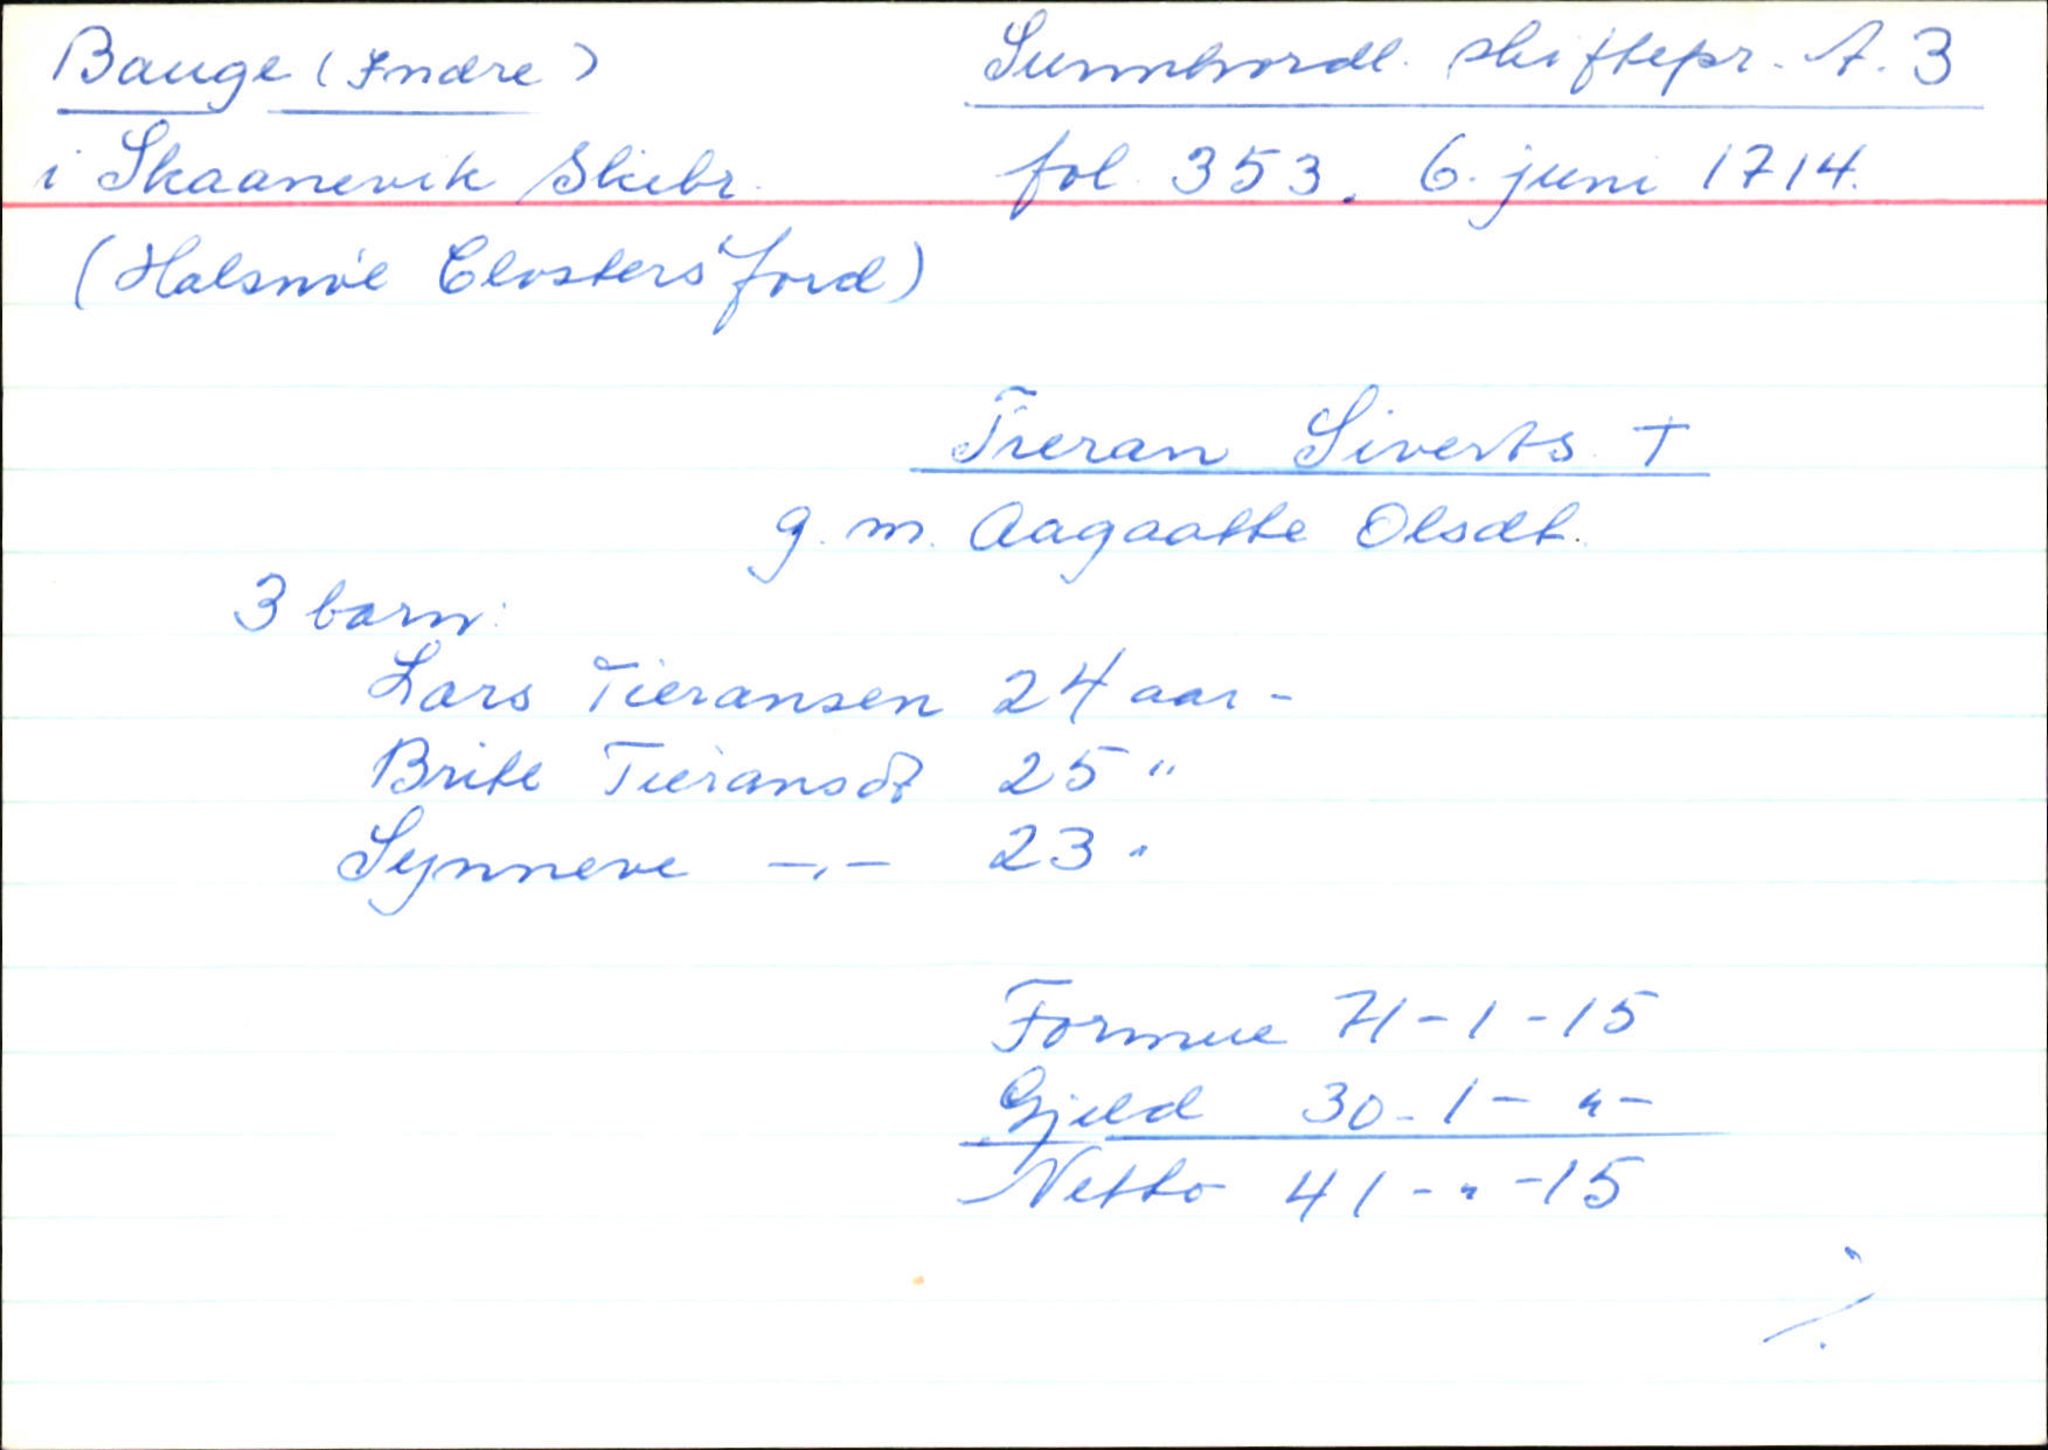 Bauge (Indre)
Sunnhordl. skiftepr. A. 3
i Skaanevik Skibr.
fol. 353. 6. juni 1714.
(Halsnøe Closters Jord)
Tieran Siverts. †
g. m. Aagaatte Olsdt.
3 barn:
Lars Tieransen 24 aar -
Brite Tieransdt 25 "
Synneve -,- 23 "
Formue 71 - 1 - 15
Gjeld 30 - 1 - " -
Netto 41 - " - 15
./.